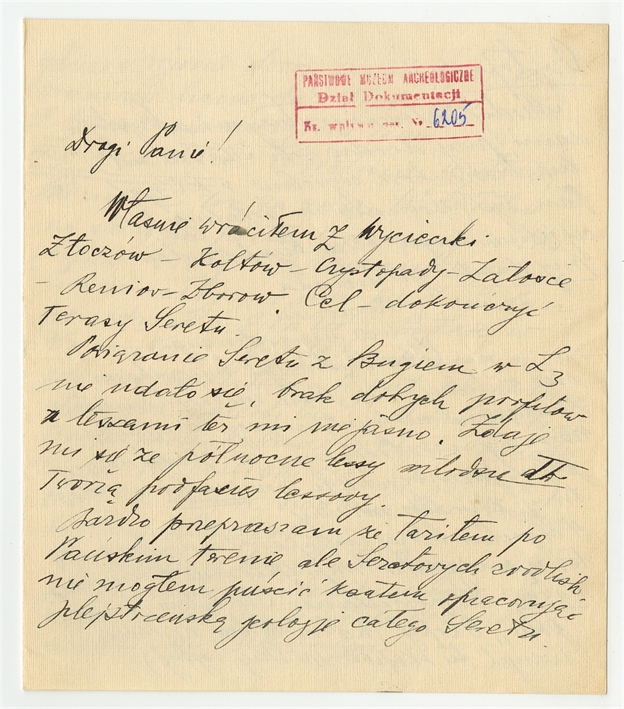 PAŃSTWOWE MUZEUM ARCHEOLOGICZNE
Dział Dokumentacji
Nr. 6205
Drogi Panie!
Właśnie wróciłem z wycieczki
Złoczów – Kołtów – Czystopady – Załoźce
– Reniów – Zborow. Cel – dokończyć
Terasy Seretu.
Powiązanie Seretu z Bugiem w L3
nie udało się, brak dobrych profilów
z lessami też mi niejasno. Zdaje
mi się że północne lessy młodsze
Tworzą podfacius lessowy.
Bardzo przepraszam że łaziłem po
Pańskim terenie ale Seretowych
nie mogłem puścić kantem opracowując
plejstoceńską geologję całego Seretu.